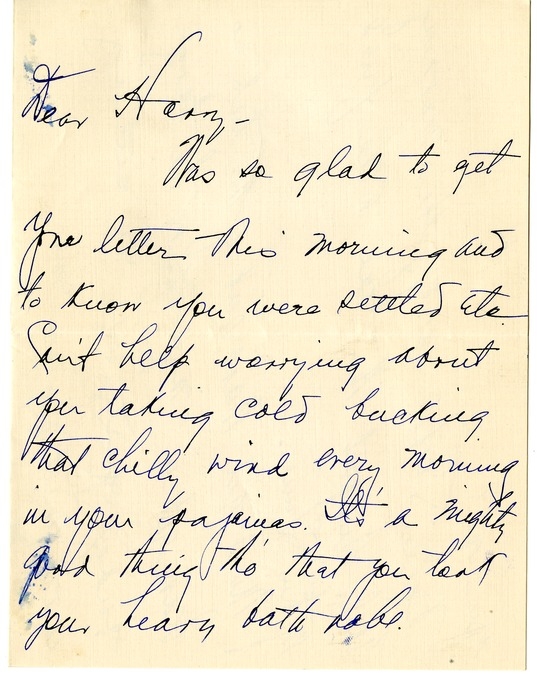 Dear Harry -
Was so glad to get
your letter this morning and
to know you were settled etc.
Can't help worrying about
you taking cold bucking
that chilly wind every morning
in your pajamas. It's a mighty
good thing tho that you took
your heavy bath robe.